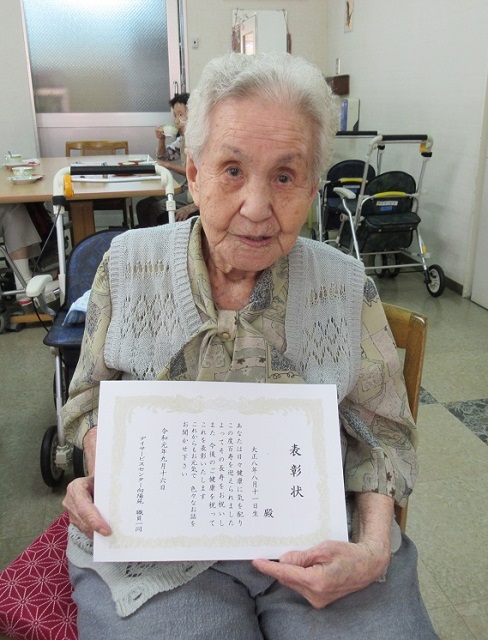 表彰状
大正八年八月十一日生
殿
あなたは日々健康に気を配り
この度百寿を迎えられました
よってその長寿をお祝いし
また今後のご健康を祝って
これを表彰いたします
これからもお元気で色々なお話を
お聞かせ下さい
令和元年九月十六日
デイサービスセンター向陽苑 職員一同